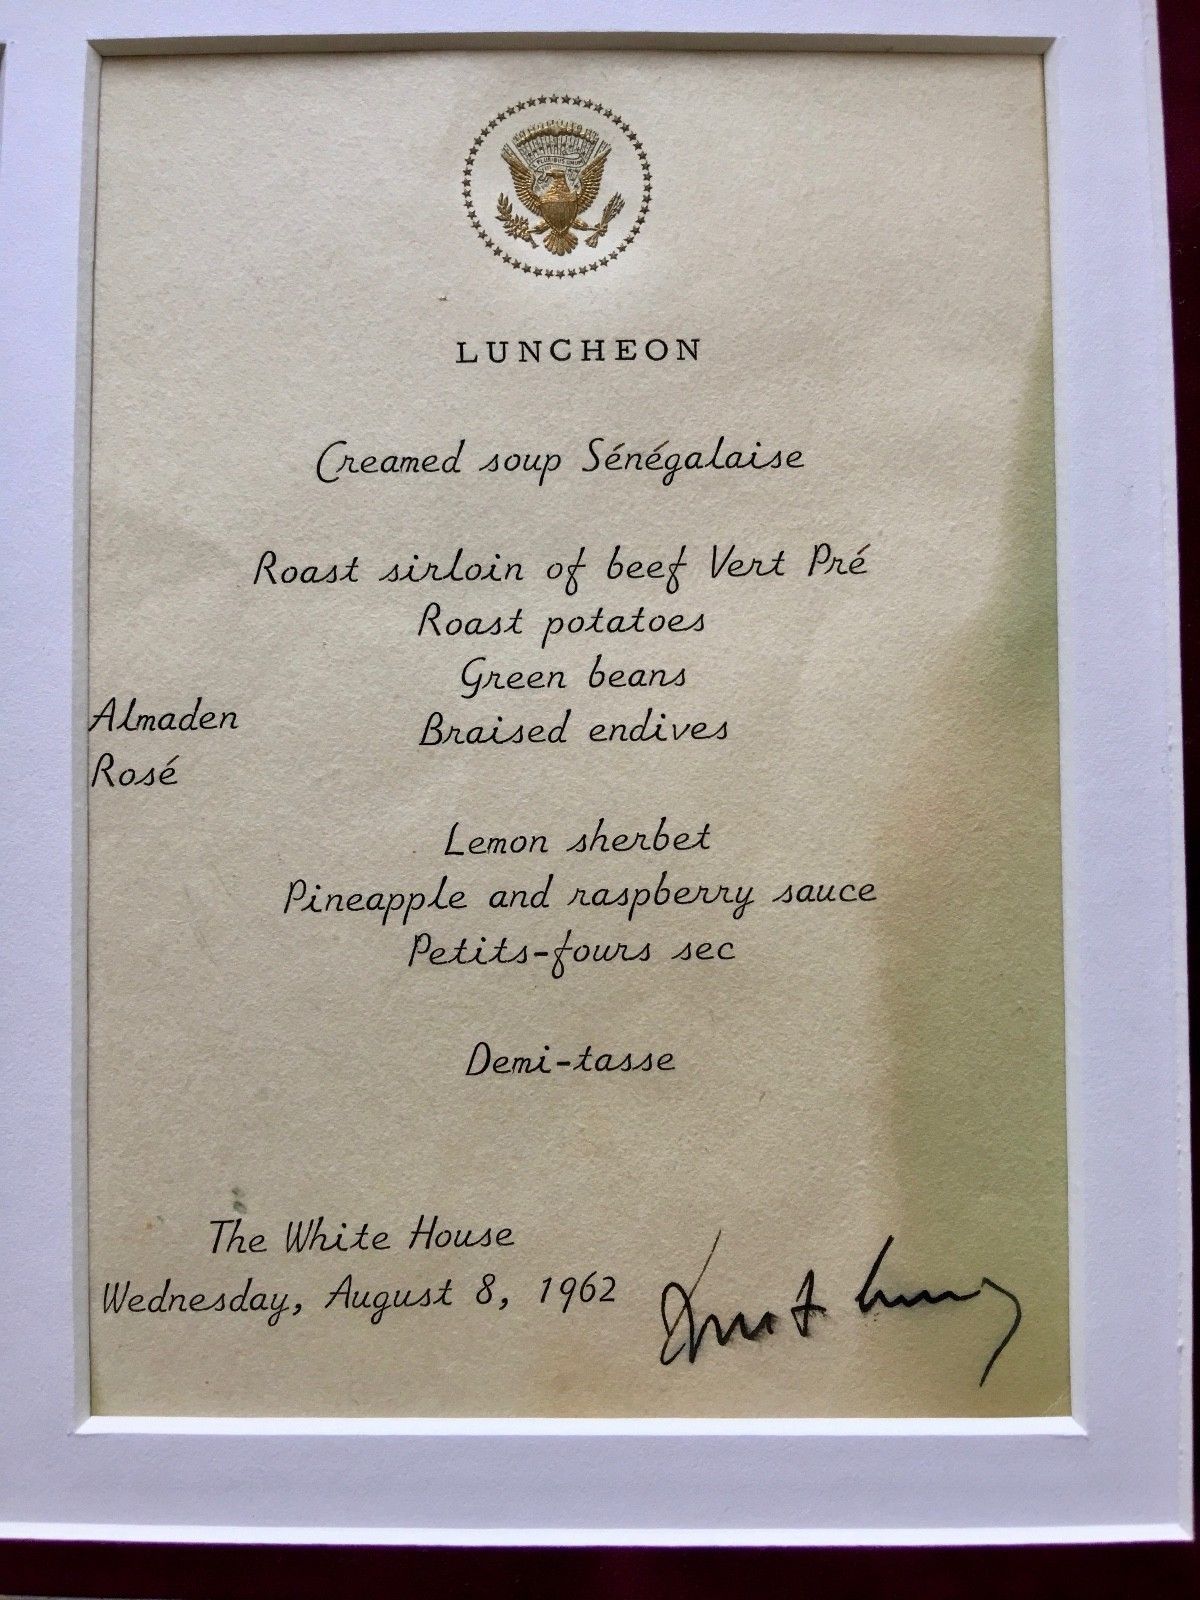 E PLURIBUS UNUM
LUNCHEON
Creamed soup Sénégalaise
Roast sirloin of beef Vert Pré
Roast potatoes
Green beans
Braised endives
Almaden
Rosé
Lemon sherbet
Pineapple and raspberry sauce
Petits-fours sec
Demi-tasse
The White House
Wednesday, August 8, 1962